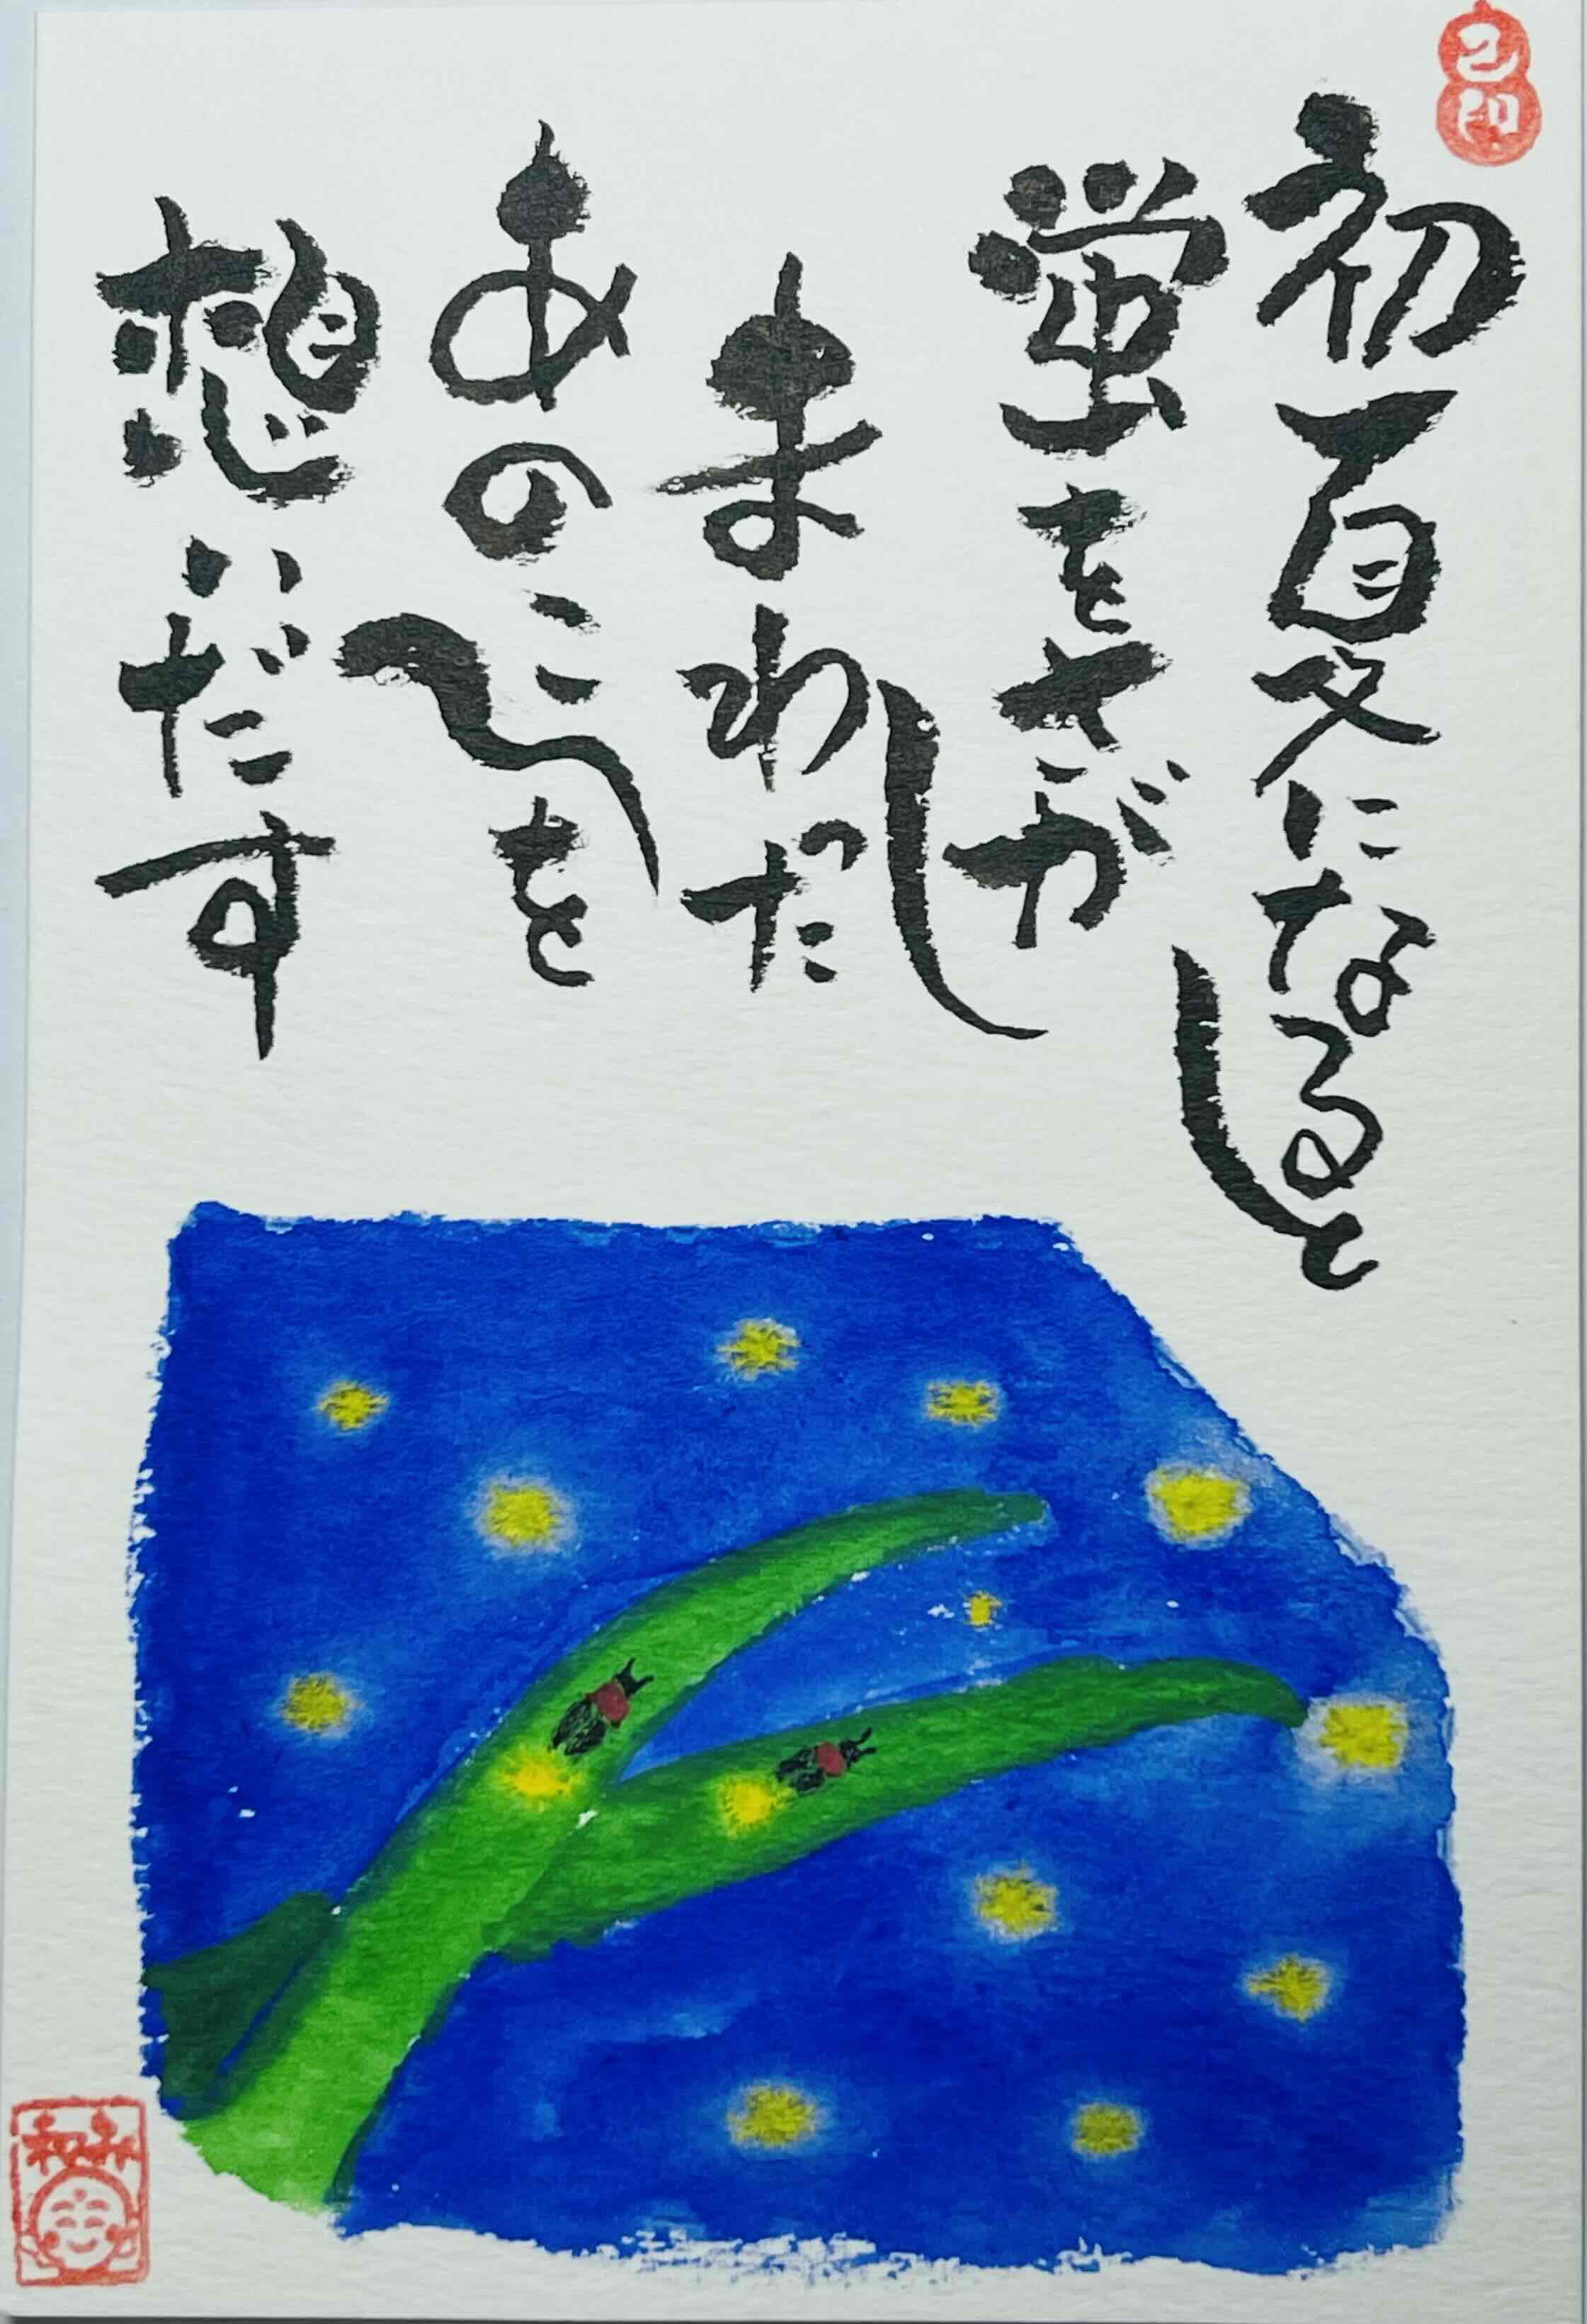 己印
初夏になると
蛍をさがし
まわった
あのころを
想いだす